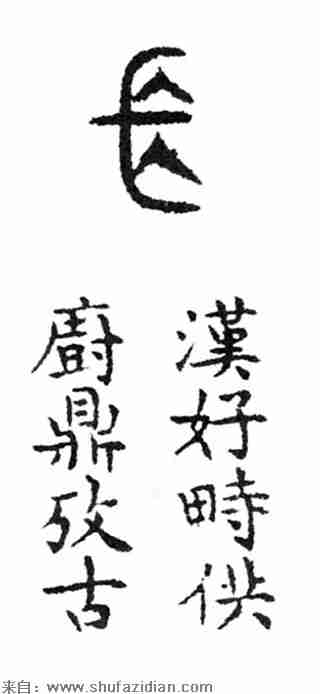 漢好畤供
廚鼎攷古
来自：www.shufazidian.com